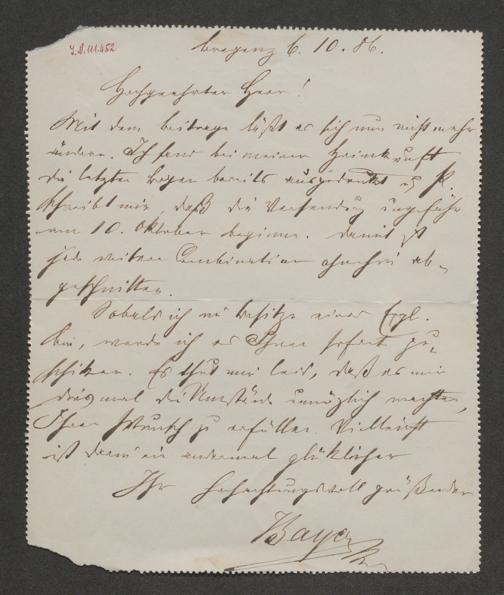 I.N. 111.452
Bregenz 6. 10. 86.
Hochgeehrter Herr!
Mit dem Beitrage läßt es sich nun nicht mehr
ändern. Ich fand bei meiner Heimkunft
die letzten Bogen bereits ausgedruckt u. P.
schreibt mir, daß die Versendung ungefähr
am 10. Oktober beginne. Damit ist
jede weitere Combination ohnehin ab-
geschnitten.
Sobald ich im Besitze eines Expl.
bin, werde ich es Ihnen sofort zu-
schicken. Es thut mir leid, daß es mir
diesmal die Umstände unmöglich machten,
Ihren Wunsch zu erfüllen. Vielleicht
ist dann ein andermal glücklicher
Ihr hochachtungsvoll grüßender
Bayer